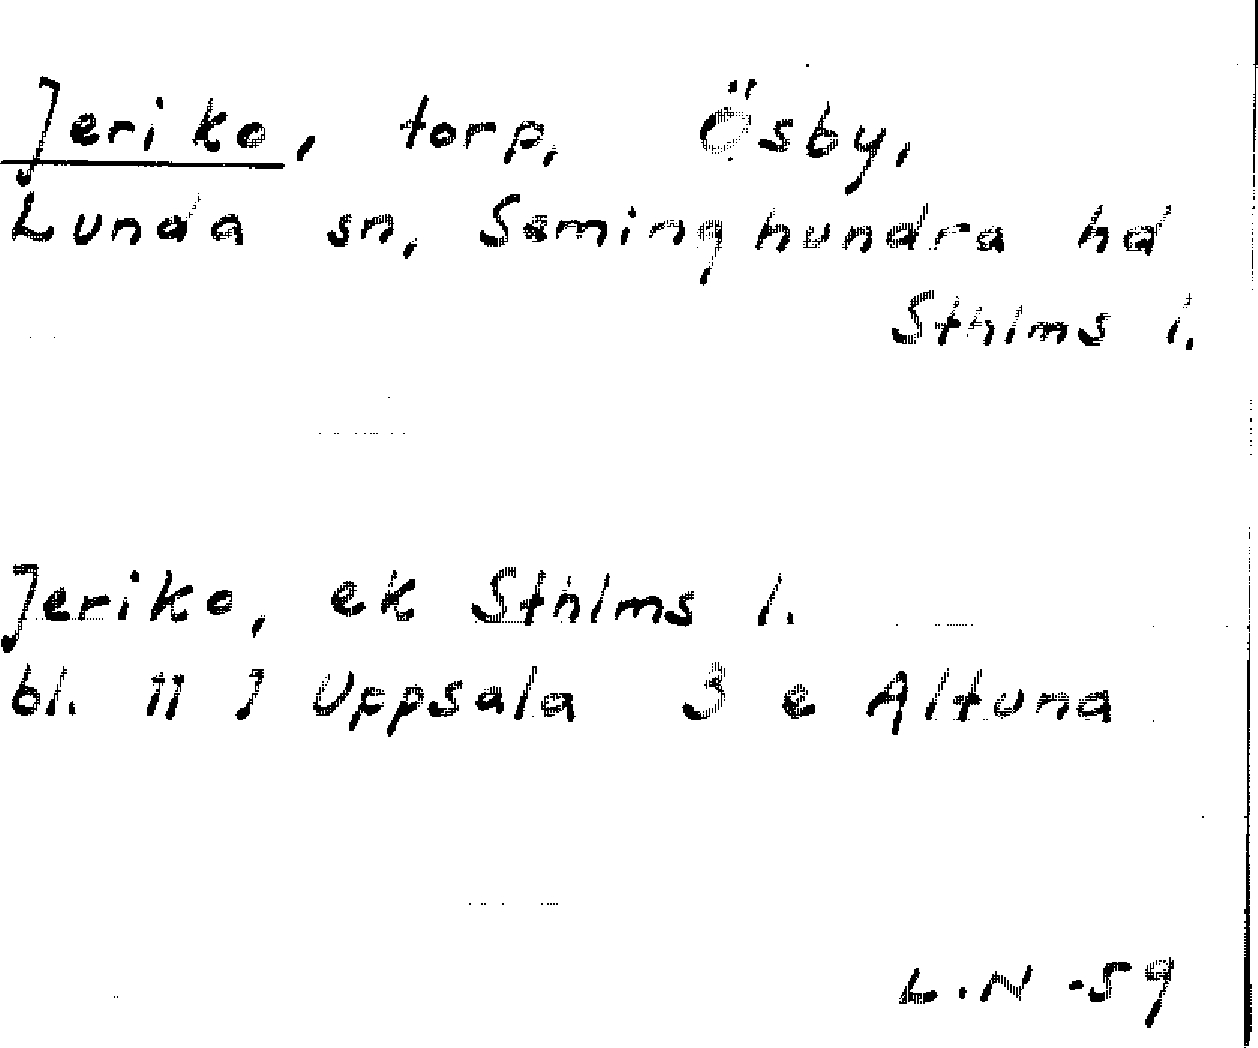 Jeriko, torp, Ösby,
Lunda sn, Seminghundra hd
Sthlms l.
Jeriko, ek Sthlms l.
bl. II J Uppsala 3 e Altuna
L.N -59